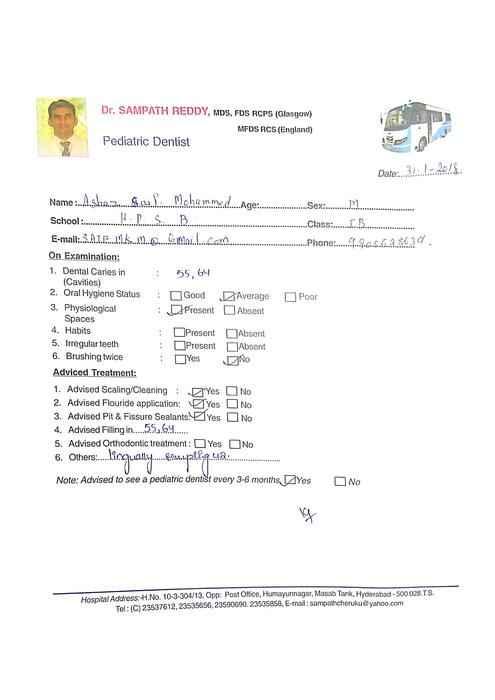 Dr. SAMPATH REDDY, MDS, FDS RCPS (Glasgow)
MFDS RCS (England)
Pediatric Dentist
Date: 31-1-2018
Name: Mohammed Age: Sex: M
School: H. P. S. B Class: I B
E-mail: Gmail.com Phone:
On Examination:
1. Dental Caries in : 55, 64
(Cavities)
2. Oral Hygiene Status : Good Average Poor
3. Physiological : Present Absent
Spaces
4. Habits : Present Absent
5. Irregular teeth : Present Absent
6. Brushing twice : Yes No
Adviced Treatment:
1. Advised Scaling/Cleaning : Yes No
2. Advised Flouride application: Yes No
3. Advised Pit & Fissure Sealants: Yes No
4. Advised Filling in 55, 64
5. Advised Orthodontic treatment : Yes No
6. Others:
Note: Advised to see a pediatric dentist every 3-6 months Yes No
Hospital Address:-H.No. 10-3-304/13, Opp: Post Office, Humayunnagar, Masab Tank, Hyderabad - 500 028.T.S.
Tel : (C) 23537612, 23535656, 23590690. 23535858, E-mail : sampathcheruku@yahoo.com